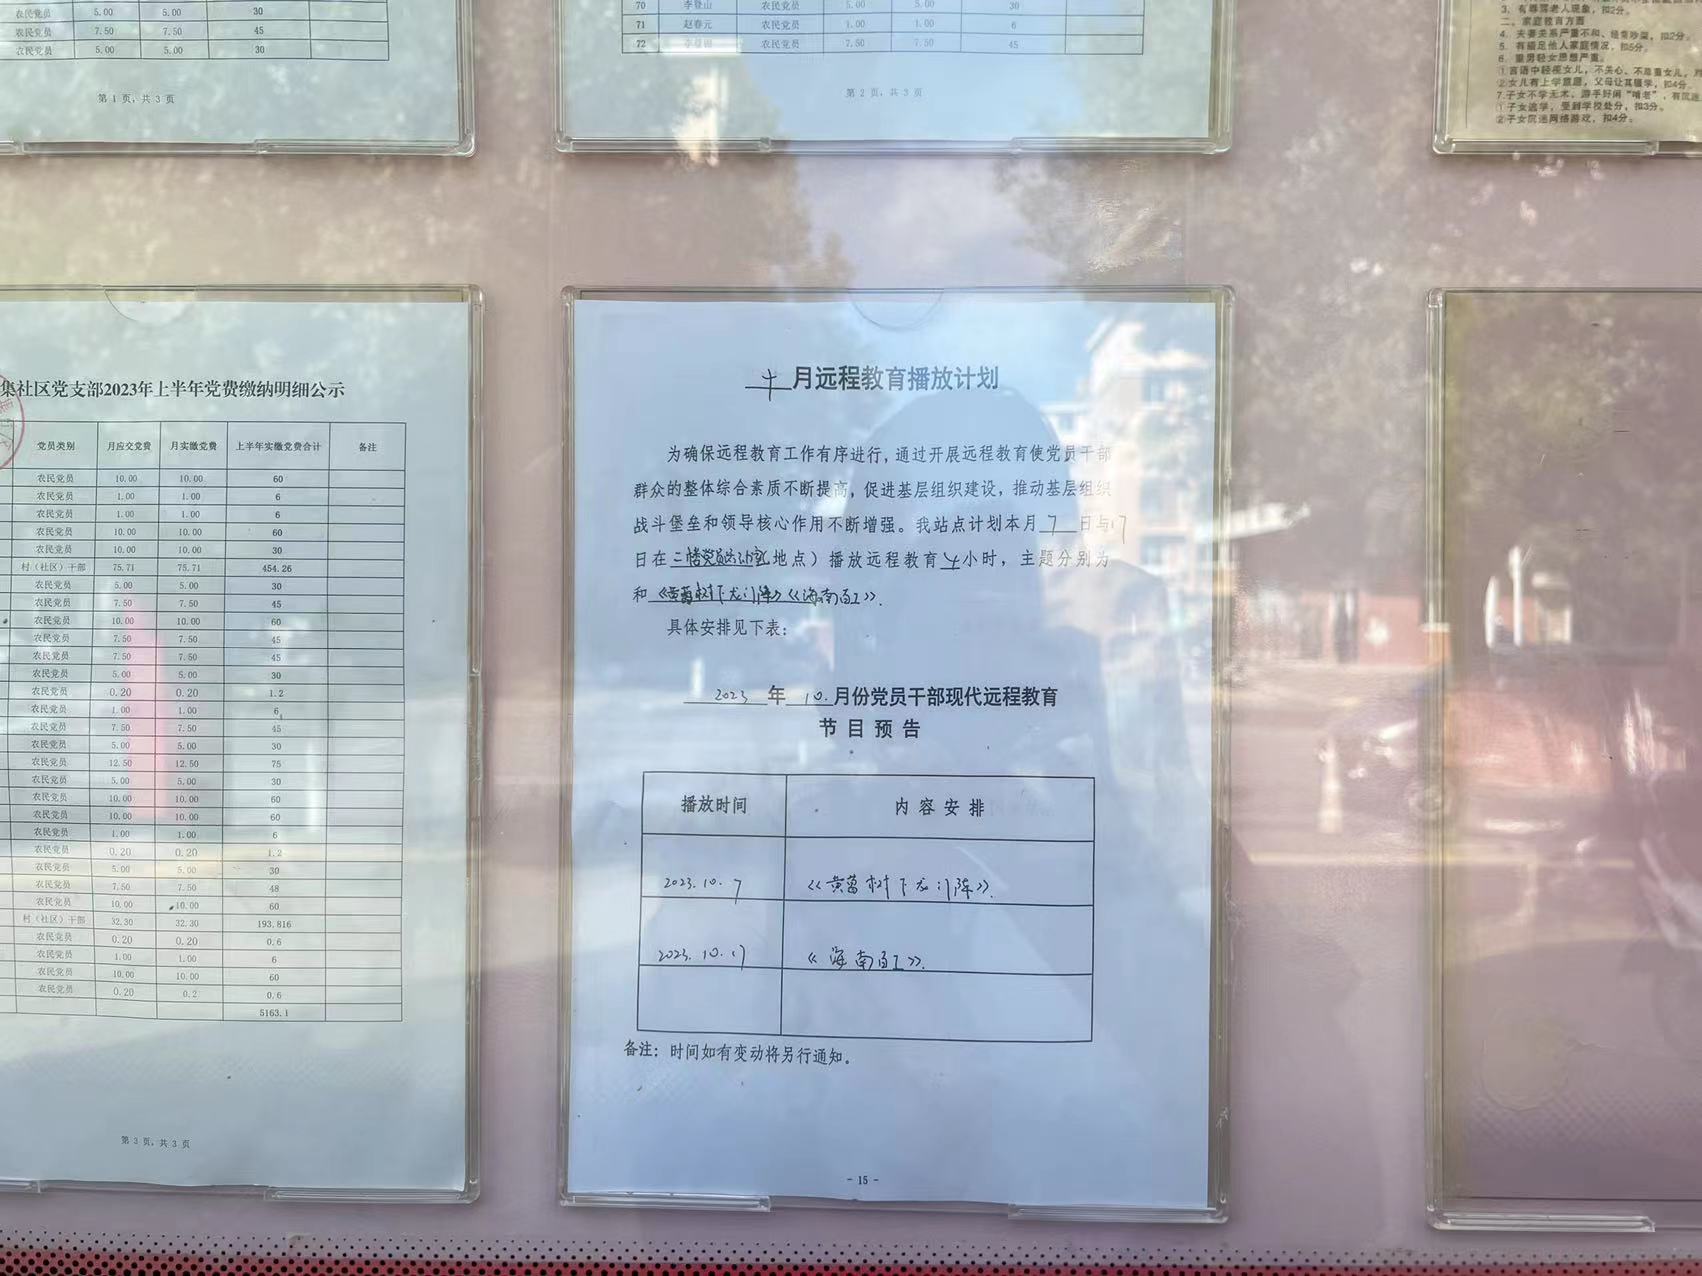 农民党员 5.00 5.00 30
农民党员 7.50 7.50 45
农民党员 5.00 5.00 30
第 1 页，共 3 页
70 李登山 农民党员 5.00 5.00 30
71 赵春元 农民党员 1.00 1.00 6
72 农民党员 7.50 7.50 45
第 2 页，共 3 页
3、有辱骂老人现象，扣2分。
二、家庭教育方面
4、夫妻关系严重不和、经常吵架，扣2分。
5、有插足他人家庭情况，扣5分。
6、重男轻女思想严重。
①言语中轻视女儿，不关心、不尊重女儿，
②女儿有上学意愿，父母让其辍学，扣4分。
7、子女不学无术、游手好闲“啃老”，有沉迷
①子女逃学，受到学校处分，扣3分。
②子女沉迷网络游戏，扣4分。
集社区党支部2023年上半年党费缴纳明细公示
党员类别 月应交党费 月实缴党费 上半年实缴党费合计 备注
农民党员 10.00 10.00 60
农民党员 1.00 1.00 6
农民党员 1.00 1.00 6
农民党员 10.00 10.00 60
农民党员 10.00 10.00 30
村（社区）干部 75.71 75.71 454.26
农民党员 5.00 5.00 30
农民党员 7.50 7.50 45
农民党员 10.00 10.00 60
农民党员 7.50 7.50 45
农民党员 7.50 7.50 45
农民党员 5.00 5.00 30
农民党员 0.20 0.20 1.2
农民党员 1.00 1.00 6
农民党员 7.50 7.50 45
农民党员 5.00 5.00 30
农民党员 12.50 12.50 75
农民党员 5.00 5.00 30
农民党员 10.00 10.00 60
农民党员 10.00 10.00 60
农民党员 1.00 1.00 6
农民党员 0.20 0.20 1.2
农民党员 5.00 5.00 30
农民党员 7.50 7.50 48
农民党员 10.00 10.00 60
村（社区）干部 32.30 32.30 193.816
农民党员 0.20 0.20 0.6
农民党员 1.00 1.00 6
农民党员 10.00 10.00 60
农民党员 0.20 0.2 0.6
5163.1
第 3 页，共 3 页
月远程教育播放计划
为确保远程教育工作有序进行，通过开展远程教育使党员干部
群众的整体综合素质不断提高，促进基层组织建设，推动基层组织
战斗堡垒和领导核心作用不断增强。我站点计划本月 7 日与17
日在二楼党员活动室（地点）播放远程教育 4 小时，主题分别为
和《黄葛树下龙门阵》《海南百工》.
具体安排见下表：
2023 年 10. 月份党员干部现代远程教育
节目预告
播放时间 内容安排
2023.10.7 《黄葛树下龙门阵》.
2023.10.17 《海南百工》.
备注：时间如有变动将另行通知。
- 15 -